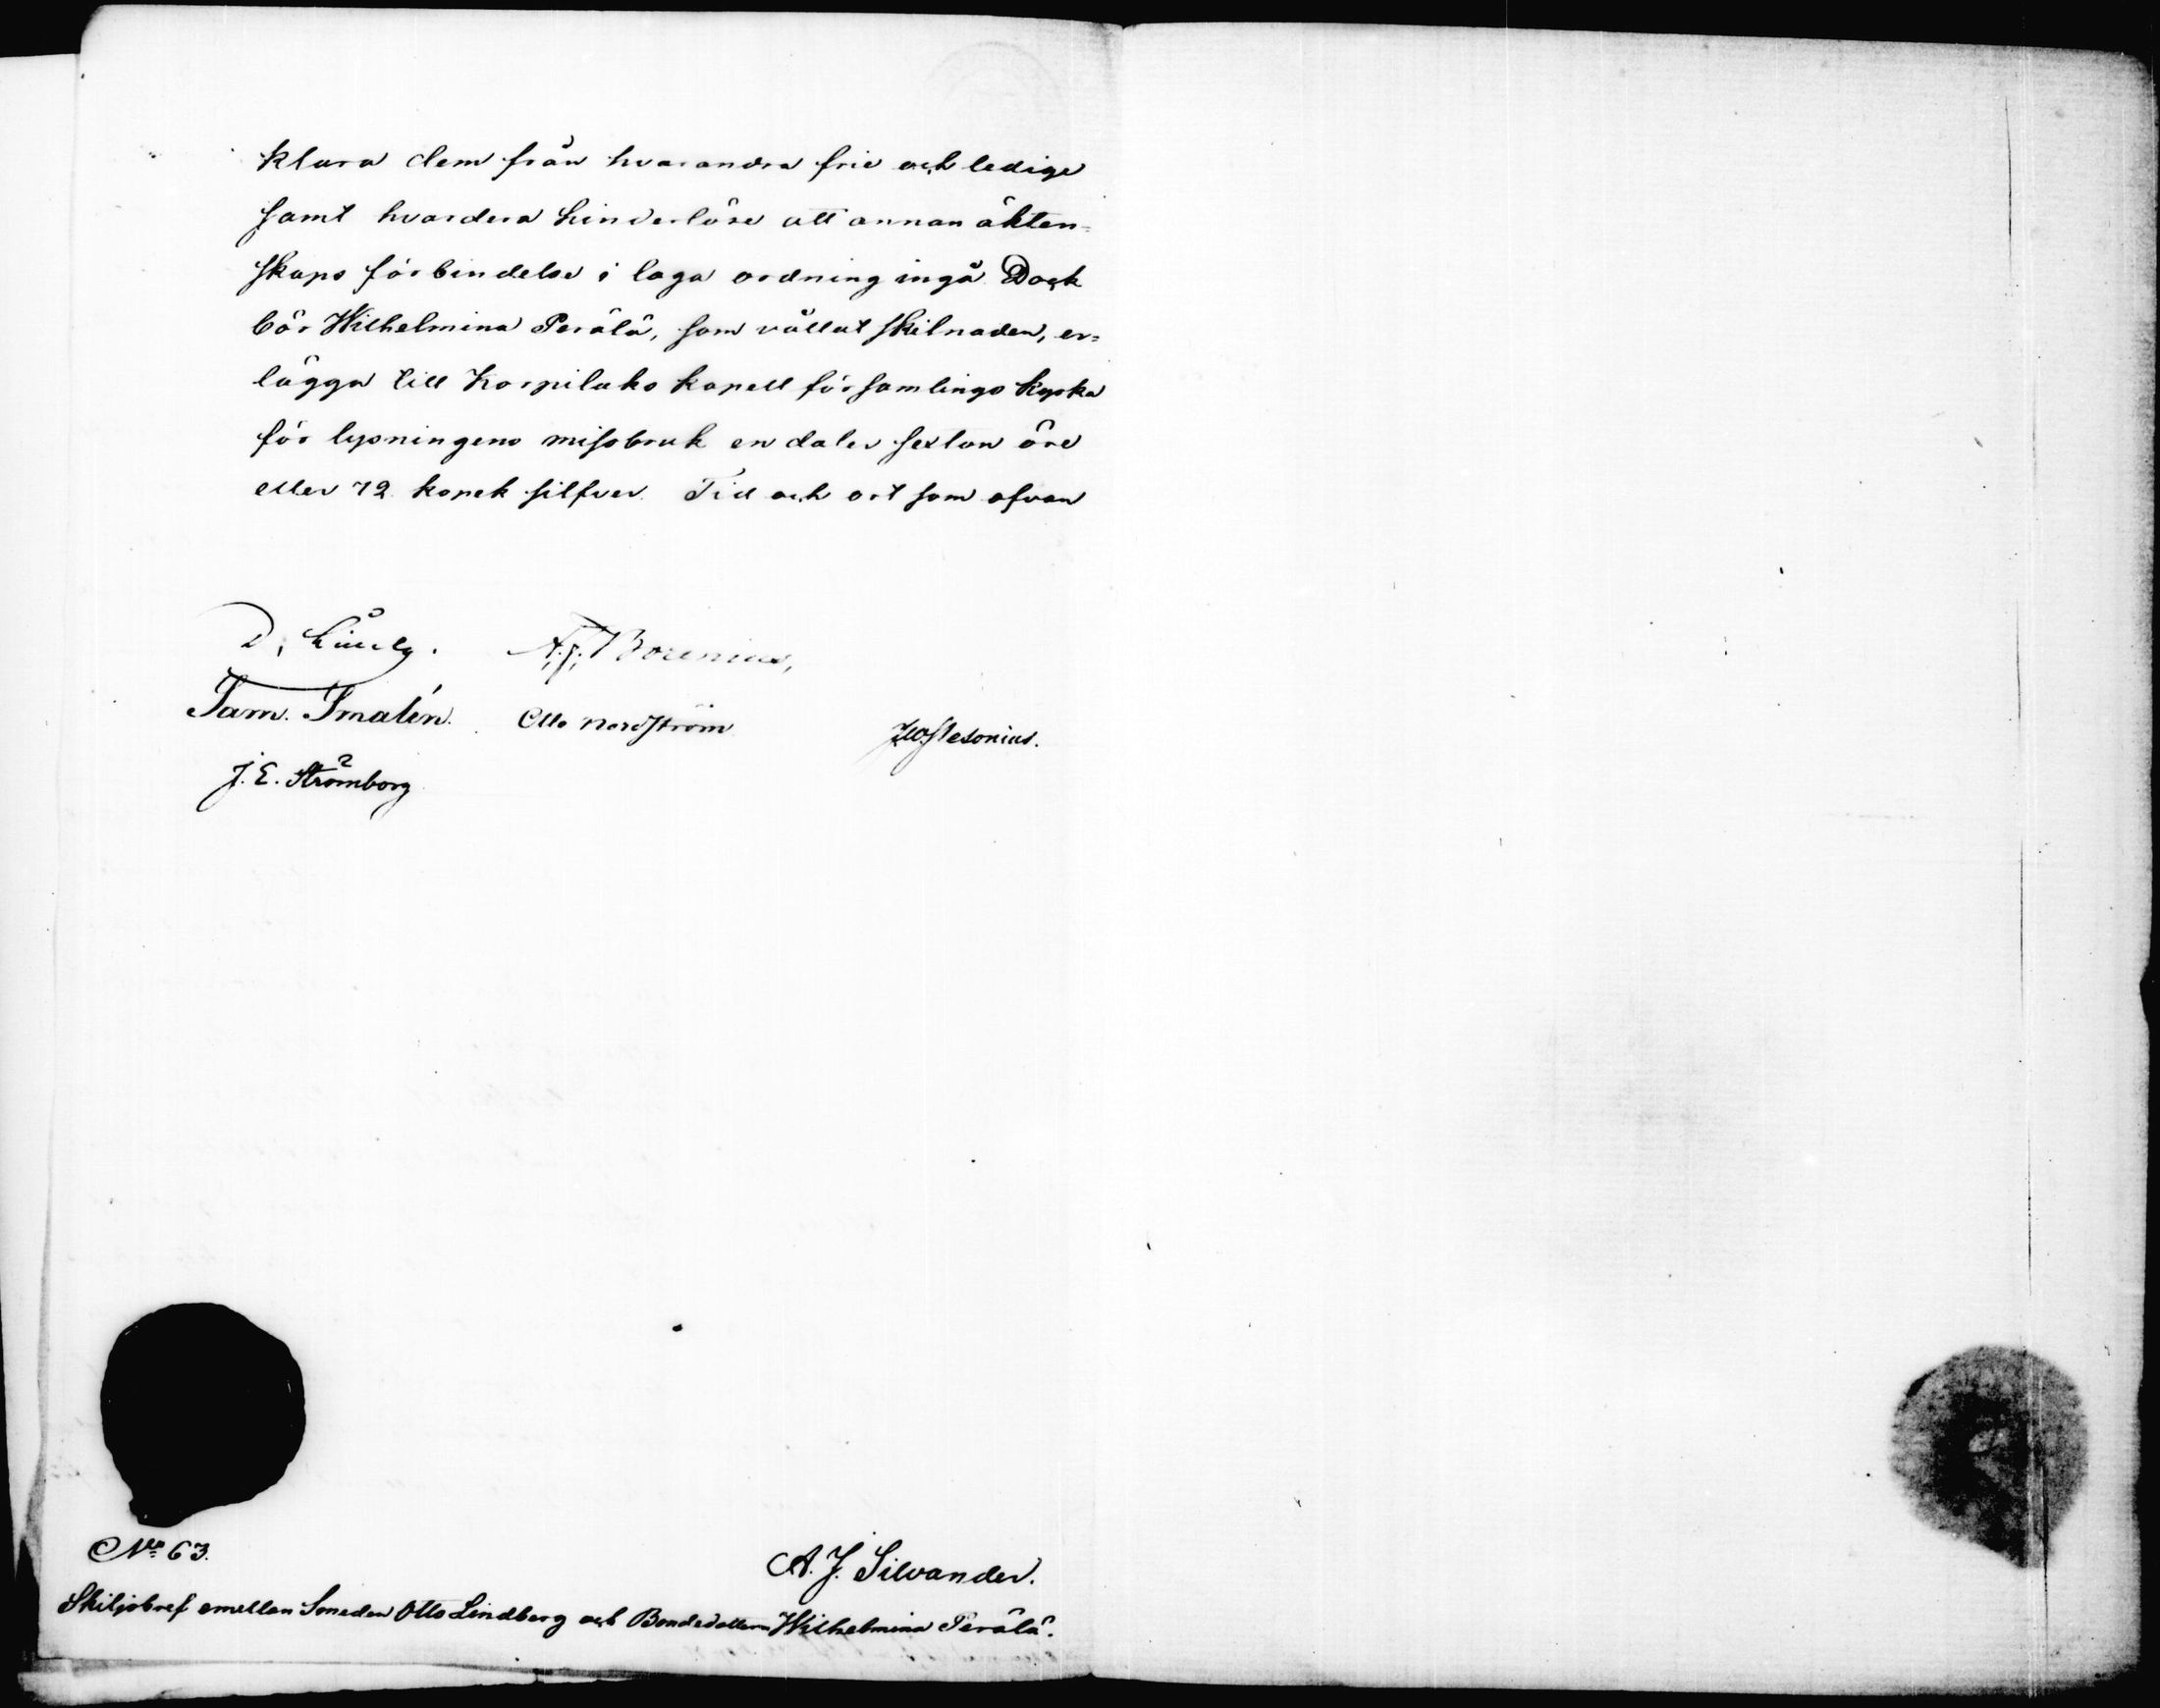 klara dem från hvarandra frie och ledige
samt hvardera hinderlöse att annan äkten=
skaps förbindelse i laga ordning ingå. Dock
bör Wilhelmina Perälä, som vållat skilnaden, er=
lägga till Korpilaks kapell församlings kyrka
för lysningens missbruk en daler sexton öre
eller 72 kopek silfver. Tid och ort som ofvan
A. J. Borenius,
Sam. Smalén. Otto Nordström
J. E. Strömborg
No 63.
A. J. Silvander.
Skiljobref emellan Smeden Otto Lindberg och Bondedottern Wilhelmina Perälä.